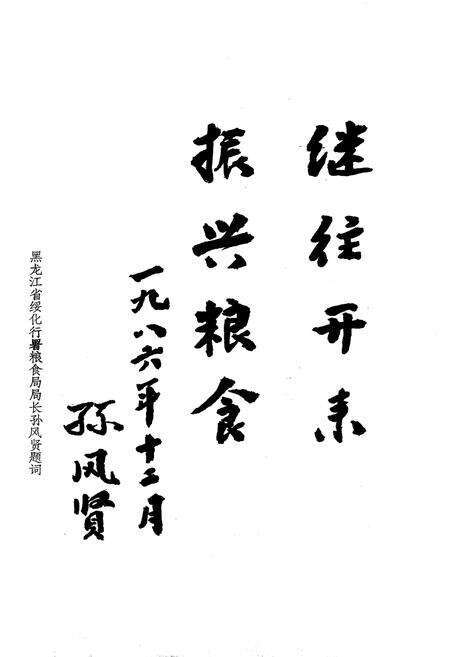 继往开来
振兴粮食
一九八六年十二月
孙风贤
黑龙江省绥化行署粮食局局长孙风贤题词